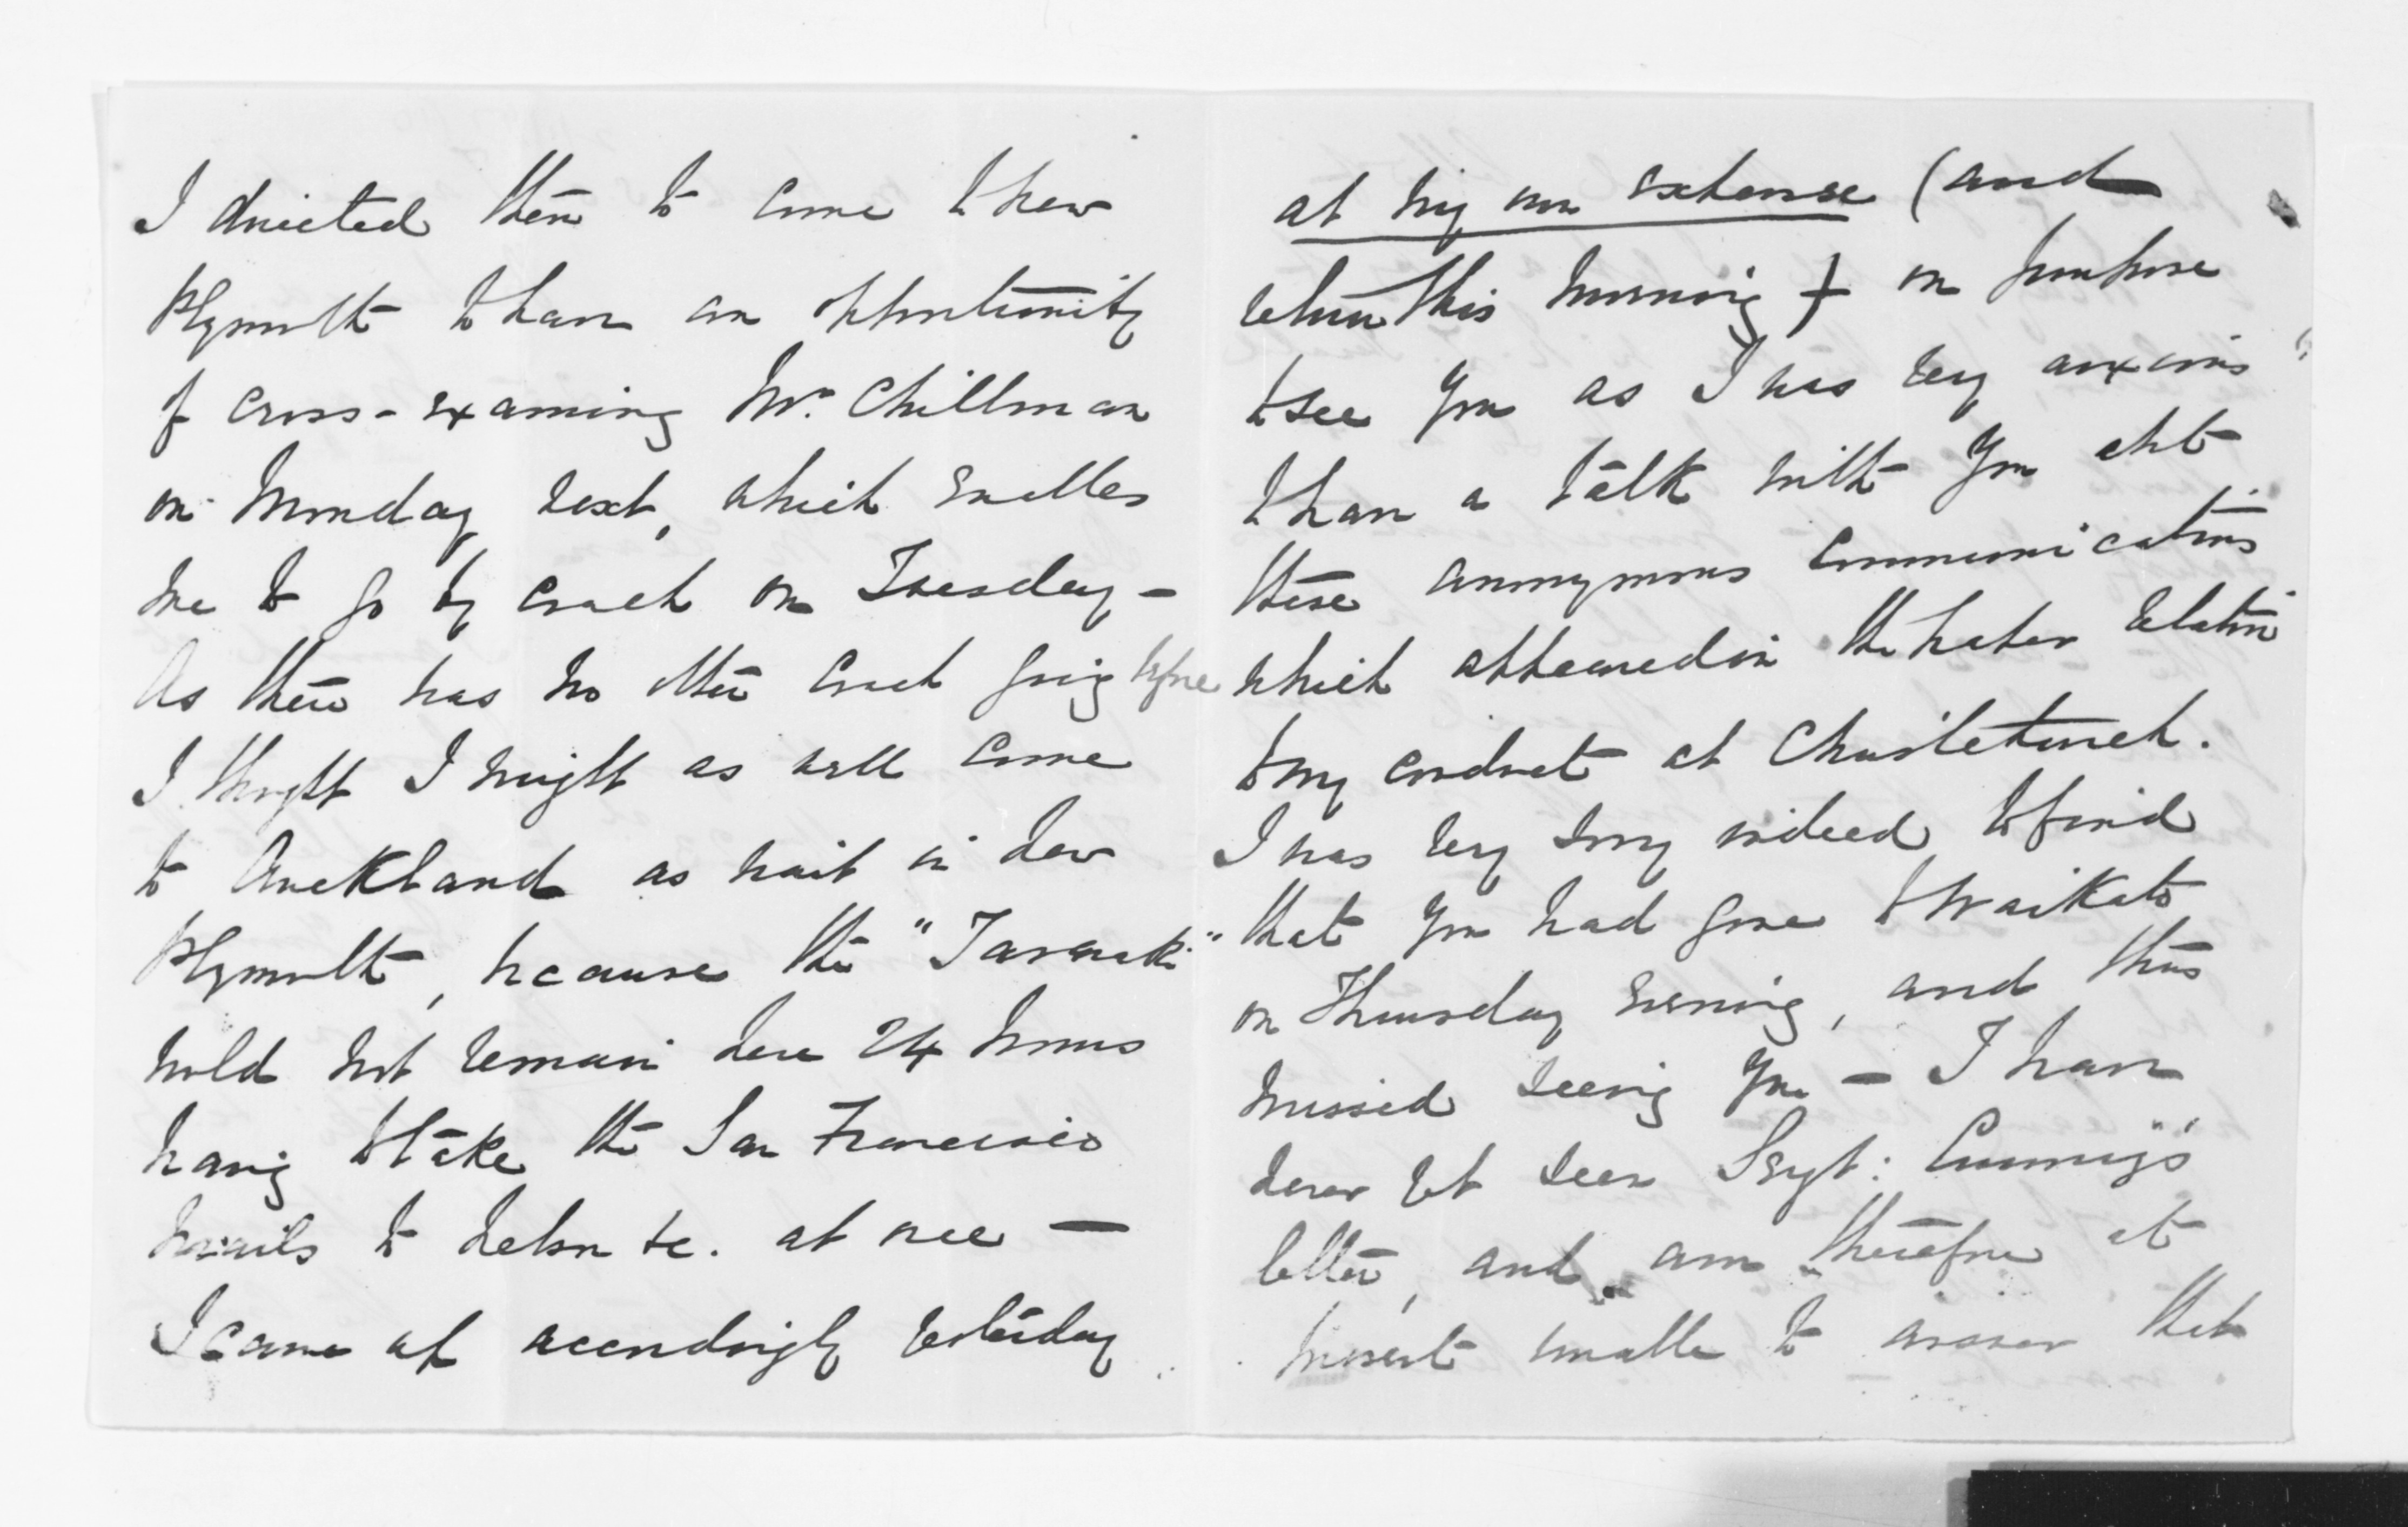 I directed them to come to New
Plymouth to have an opportunity
of cross-examing Mr. Chillman
on Monday next, which enables
me to go by coach on Tuesday —
As there was no other coach going before
I thought I might as well come
to Auckland as wait in New
Plymouth, because the "Taranaki"
would not remain here 24 hours
having to take the San Francisco
mails to Nelson &c. at once —
I came up accordingly yesterday
at my own expense (and
return this morning) on purpose
to see you as I was very anxious
to have a talk with you abt
these anonymous communications
which appeared in the paper relative
to my conduct at Christchurch.
I was very sorry indeed to find
that you had gone to Waikato
on Thursday evening, and thus
missed seeing you — I have
never yet seen Sergt: Cumming's
letter, and am therefore at
present unable to answer that